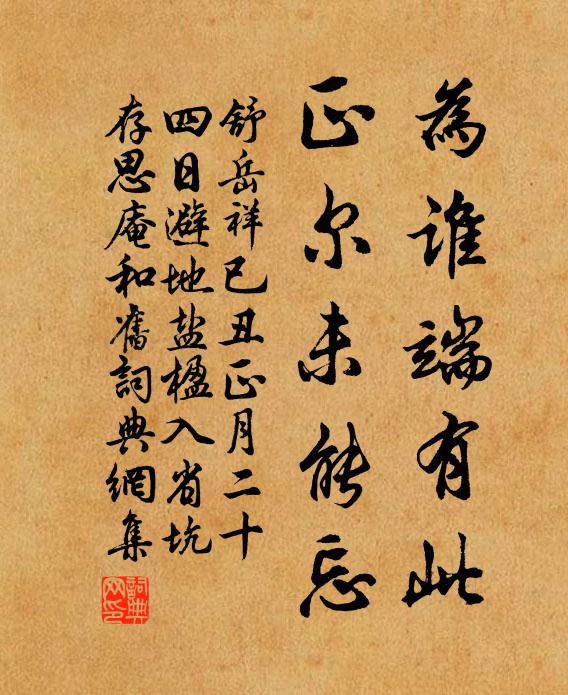 為誰端有此
正尔未能忘
舒岳祥己丑正月二十
四日避地盐楹入省坑
存思庵和舊詞典網集
詞典网印